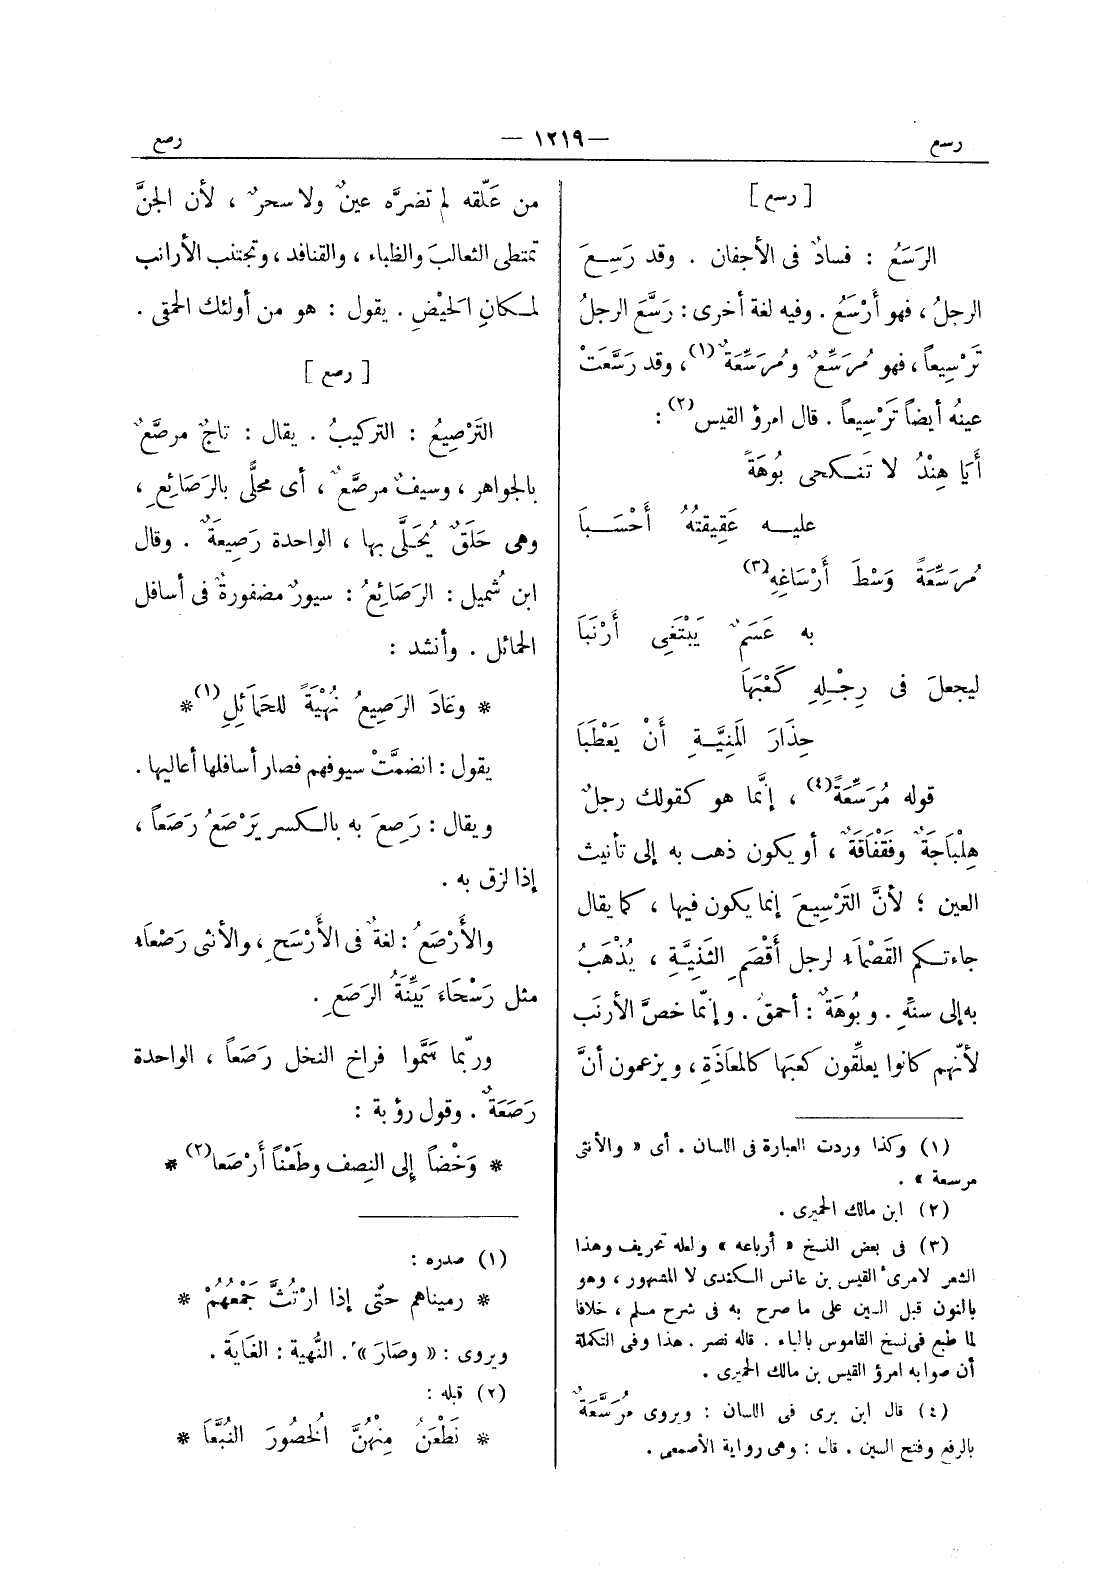 رسع
— ١٢١٩ —
رصع
[ رسع ]
الرَسَعُ : فسادٌ فى الأجفان . وقد رَسِعَ
الرجلُ ، فهو أَرْسَعُ . وفيه لغة أخرى : رَسَّعَ الرجلُ
تَرْسِيعاً ، فهو مُرَسِّعٌ ومُرَسِّعَةٌ (١) ، وقد رَسَّعَتْ
عينُه أيضاً تَرْسِيعاً . قال امرؤ القيس (٢) :
أَيَا هِنْدُ لا تَنكحى بُوهَةً
عليه عَقِيقتُهُ أَحْسَبَا
مُرَسِّعَةً وَسْطَ أَرْسَاغِهِ (٣)
به عَسَمٌ يَبْتَغِى أَرْنَبَا
ليجعلَ فى رِجْلِهِ كَعْبَهَا
حِذَارَ المَنِيَّةِ أَنْ يَعْطَبَا
قوله مُرَسِّعَةً (٤) ، إنَّما هو كقولك رجلٌ
هِلْبَاجَةٌ وفَقْفَاقَةٌ ، أو يكون ذهب به إلى تأنيث
العين ؛ لأنَّ التَرْسِيعَ إنما يكون فيها ، كما يقال
جاءتكم القَصْماَء لرجل أَقْصَمِ الثَنِيَّةِ ، يُذْهَبُ
به إلى سنهِّ . وبُوهَةٌ : أحمقُ . وإنّما خصَّ الأرنَب
لأنّهم كانوا يعلِّقون كعبَها كالمعَاذَةِ ، ويزعمون أنَّ
(١) وكذا وردت العبارة فى اللسان . أى « والأنثى
مرسعة » .
(٢) ابن مالك الحميرى .
(٣) فى بعض النسخ « أرباعه » ولعله تحريف وهذا
الشعر لامرئ القيس بن عانس الكندى لا المشهور ، وهو
بالنون قبل السين على ما صرح به فى شرح مسلم ، خلافا
لما طبع فى نسخ القاموس بالباء . قاله نصر . هذا وفى التكملة
أن صوابه امرؤ القيس بن مالك الحميرى .
(٤) قال ابن برى فى اللسان : ويروى مُرَسَّعَةٌ
بالرفع وفتح السين . قال : وهى رواية الأصمعى .
من عَلّقه لم تضرَّه عينٌ ولا سحرٌ ، لأن الجنَّ
تمتطى الثعالبَ والظباء ، والقنافد ، وتجتنب الأرانب
لمكانِ الحَيْضِ . يقول : هو من أولئك الحمقى .
[ رصع ]
التَرْصِيعُ : التركيبُ . يقال : تاجٌ مرصَّعٌ
بالجواهر ، وسيفٌ مرصَّعٌ ، أى محلًّى بالرَصَائِعِ ،
وهى حَلَقٌ يُحَلَّى بها ، الواحدة رَصِيعَةٌ . وقال
ابن شُميل : الرَصَائِعُ : سيورٌ مضفورةٌ فى أسافل
الحمائل . وأنشد :
* وعَادَ الرَصِيعُ نُهْيَةً للحَمَائِلِ (١) *
يقول : انضمَّتْ سيوفهم فصار أسافلها أعاليها .
ويقال : رَصِعَ به بالكسر يَرْصَعُ رَصَعاً ،
إذا لزق به .
والأَرْصَعُ : لغةٌ فى الأَرْسَحِ ، والأنثى رَصْعَاء
مثل رَسْحَاءَ بَيِّنَةُ الرَصَعِ .
وربّما سَمَّوا فراخ النخل رَصَعاً ، الواحدة
رَصَعَةٌ . وقول رؤبة :
* وَخْضاً إلى النِصف وطَعْناً أَرْصَعا (٢) *
(١) صدره :
* رميناهم حتّى إذا ارْتُثَّ جَمْعُهُمْ *
ويروى : « وصَارَ » . النُّهية : الغَايَة .
(٢) قبله :
* نَطْعَنُ مِنْهُنَّ الخُصُورَ النُبَّعَا *